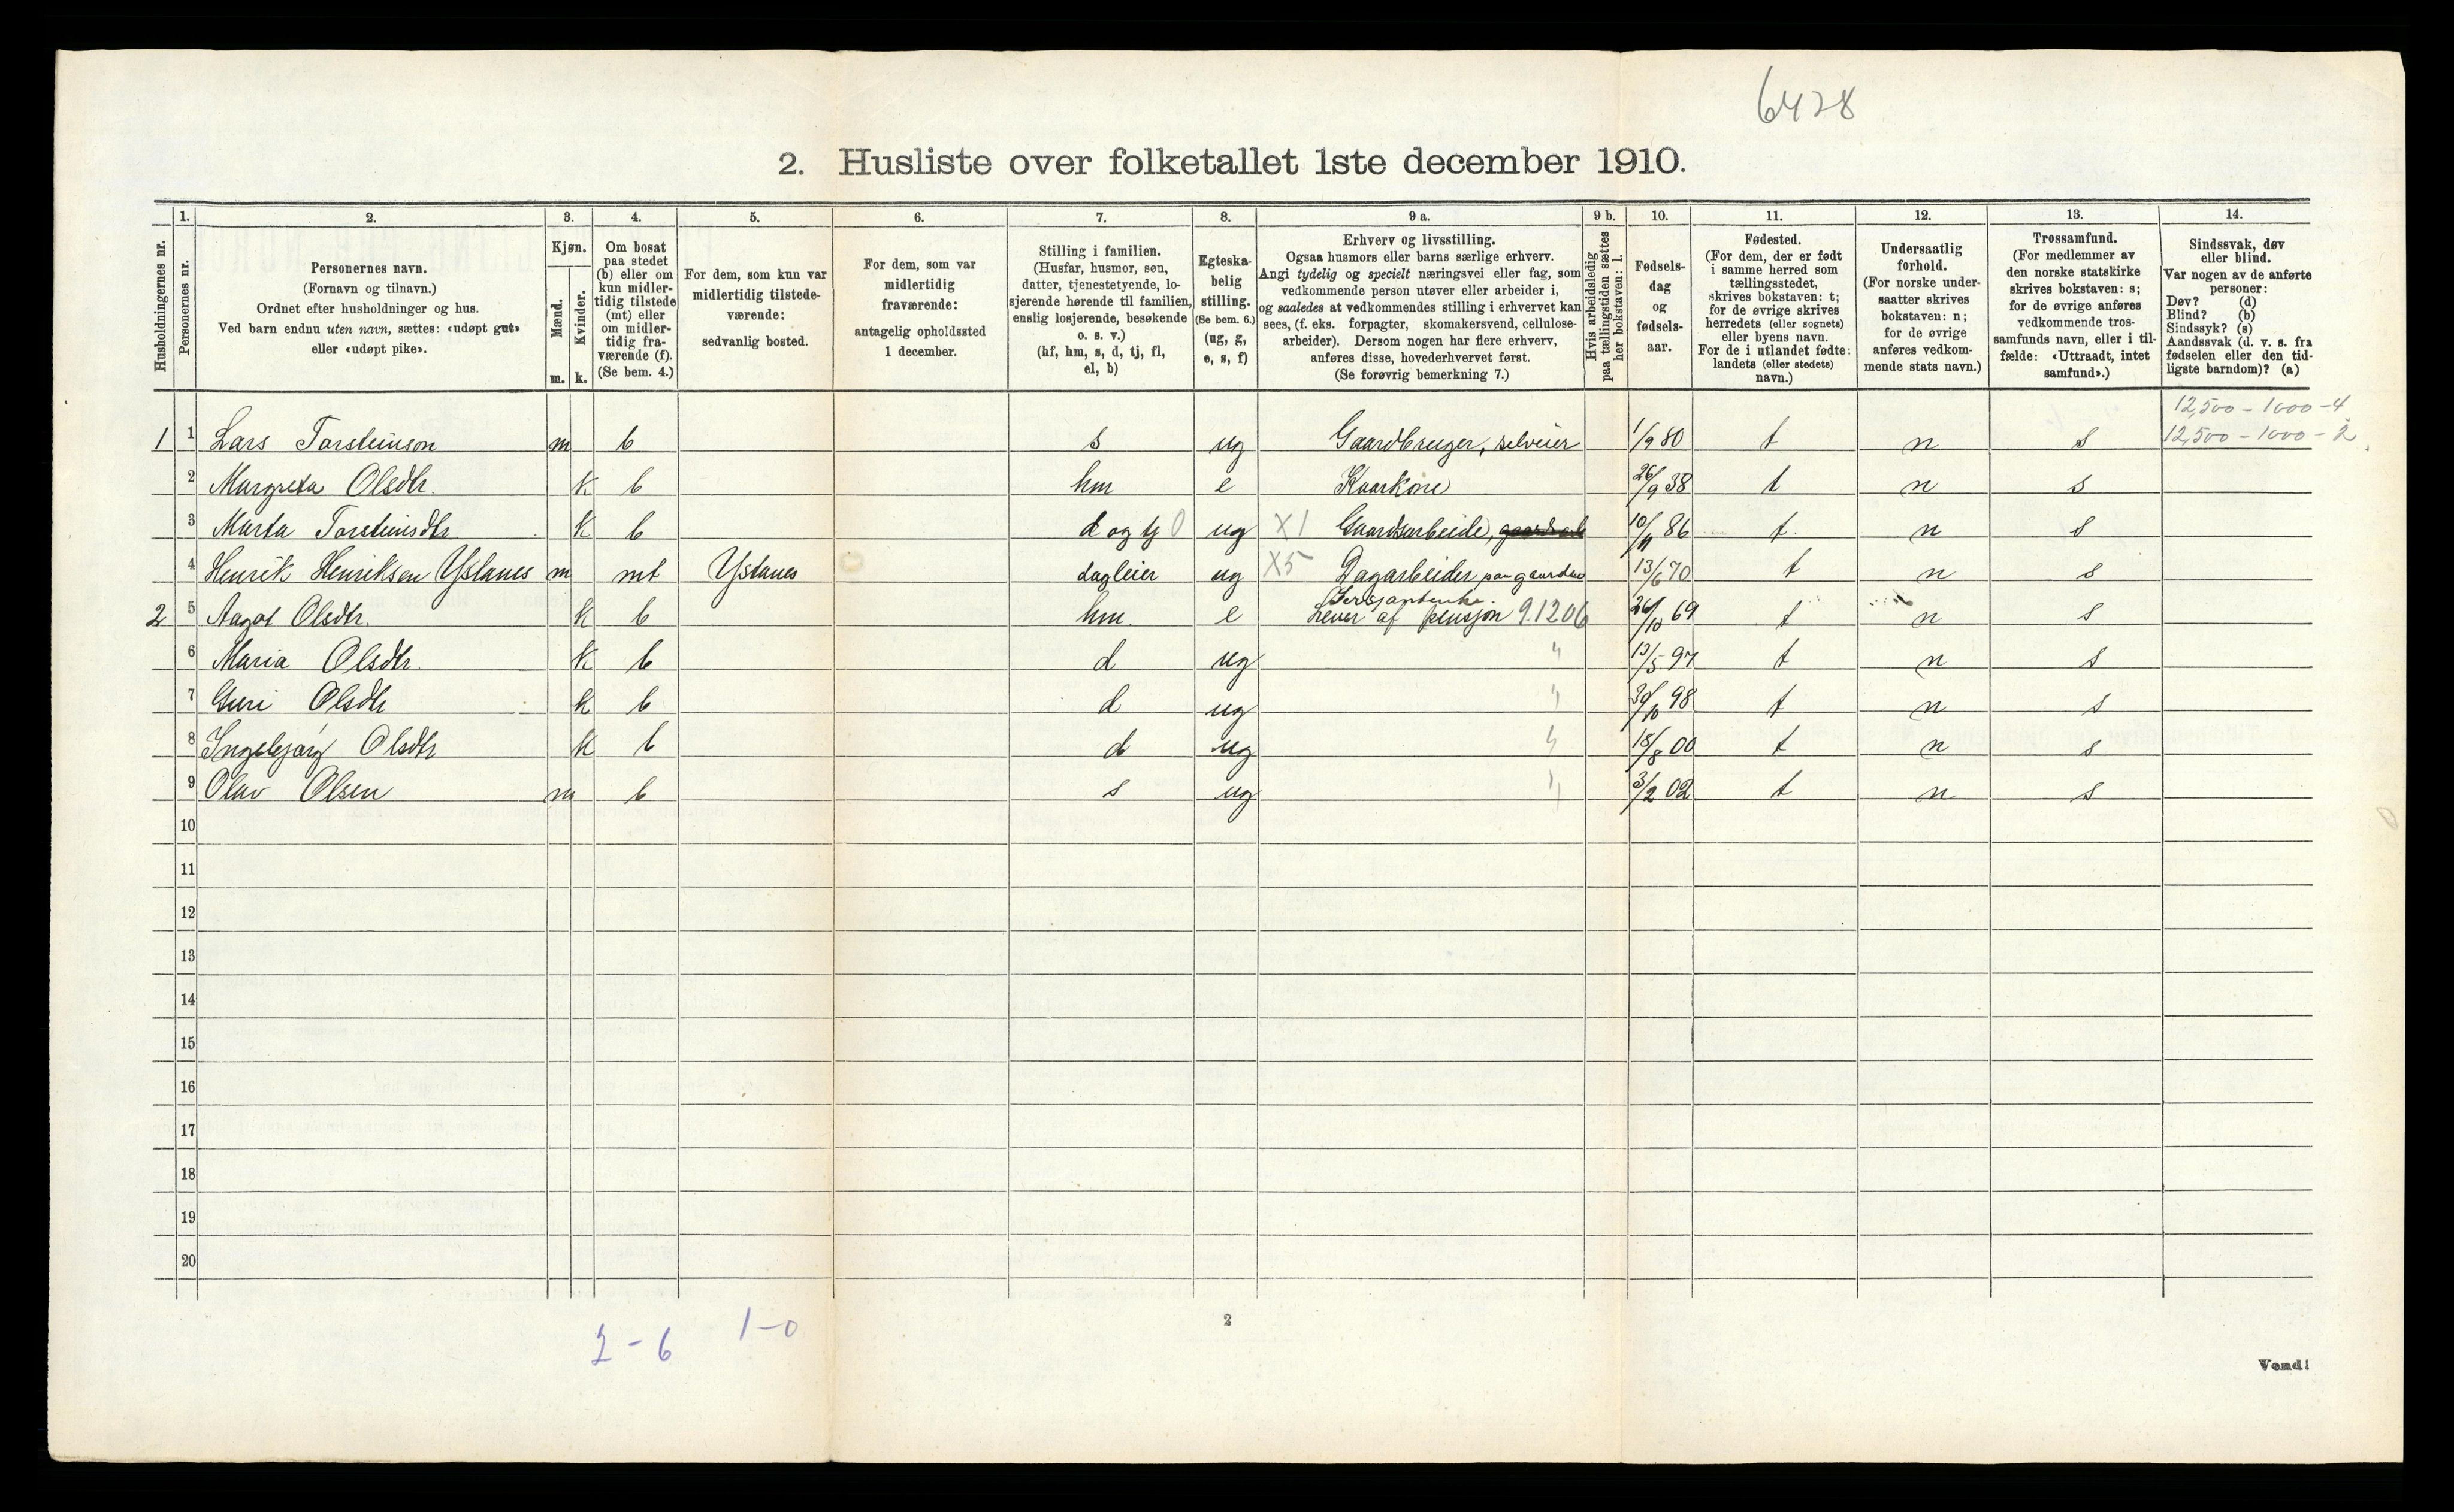 6428
2. Husliste over folketallet 1ste december 1910.
Husholdningernes nr.
1. Personernes nr.
2. Personernes navn. (Fornavn og tilnavn.) Ordnet efter husholdninger og hus. Ved barn endnu uten navn, sættes: «udøpt gut» eller «udøpt pike».
3. Kjøn. Mænd. m. Kvinder. k.
4. Om bosat paa stedet (b) eller om kun midlertidig tilstede (mt) eller om midlertidig fraværende (f). (Se bem. 4.)
5. For dem, som kun var midlertidig tilstedeværende: sedvanlig bosted.
6. For dem, som var midlertidig fraværende: antagelig opholdssted 1 december.
7. Stilling i familien. (Husfar, husmor, søn, datter, tjenestetyende, losjerende hørende til familien, enslig losjerende, besøkende o. s. v.) (hf, hm, s, d, tj, fl, el, b)
8. Egteskabelig stilling. (Se bem. 6.) (ug, g, e, s, f)
9 a. Erhverv og livsstilling. Ogsaa husmors eller barns særlige erhverv. Angi tydelig og specielt næringsvei eller fag, som vedkommende person utøver eller arbeider i, og saaledes at vedkommendes stilling i erhvervet kan sees, (f. eks. forpagter, skomakersvend, cellulosearbeider). Dersom nogen har flere erhverv, anføres disse, hovederhvervet først. (Se forøvrig bemerkning 7.)
9 b. Hvis arbeidsledig paa tællingstiden sættes her bokstaven: l.
10. Fødselsdag og fødselsaar.
11. Fødested. (For dem, der er født i samme herred som tællingsstedet, skrives bokstaven: t; for de øvrige skrives herredets (eller sognets) eller byens navn. For de i utlandet fødte: landets (eller stedets) navn.)
12. Undersaatlig forhold. (For norske undersaatter skrives bokstaven: n; for de øvrige anføres vedkommende stats navn.)
13. Trossamfund. (For medlemmer av den norske statskirke skrives bokstaven: s; for de øvrige anføres vedkommende trossamfunds navn, eller i tilfælde: «Uttraadt, intet samfund».)
14. Sindssvak, døv eller blind. Var nogen av de anførte personer: Døv? (d) Blind? (b) Sindssyk? (s) Aandssvak (d. v. s. fra fødselen eller den tidligste barndom)? (a)
12,500 - 1000 - 4
1 1 Lars Torsteinson m b s ug Gaardbruger, selveier 1/9 80 t n s 12,500 - 1000 - 2
2 Margreta Olsdtr. k b hm e Kaarkone 26/9 38 t n s
3 Marta Torsteinsdtr. k b d og tj 0 ug X1 Gaardsarbeide, 10/11 86 t n s
4 Henrik Henriksen Ystanes m mt Ystanes dagleier ug X5 Dagarbeider paa gaarden 13/6 70 t n s
2 5 Aagot Olsdtr. k b hm e Lever af pensjon 9.1206 26/10 69 t n s
6 Maria Olsdtr. k b d ug " 13/5 97 t n s
7 Guri Olsdtr k b d ug " 30/10 98 t n s
8 Ingebjørg Olsdtr k b d ug " 18/8 00 t n s
9 Olav Olsen m b s ug " 3/2 02 t n s
10
11
12
13
14
15
16
17
18
19
20
2 - 6 1-0
2
Vend!